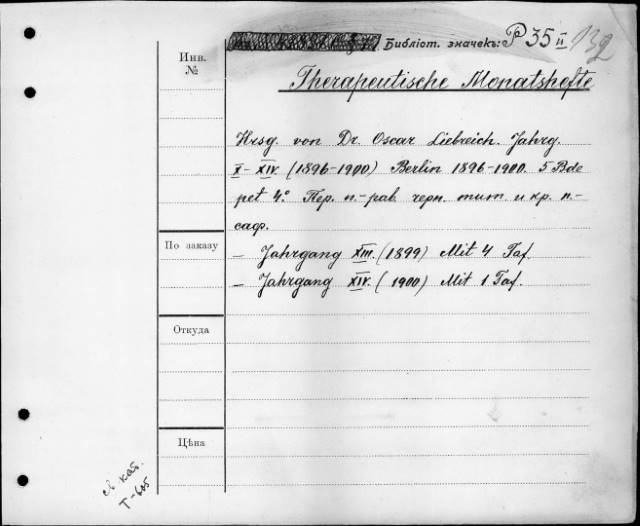 Библіот. значекъ: P 35 II
Инв.
№
Therapeutische Monatshefte
Hrsg. von Dr. Oscar Liebreich. Jahrg.
X - XIV. (1896-1900) Berlin 1896-1900. 5 Bde
pet 4.° Пер. п.-рав. черн. тит. и кр. п.-
саф.
По заказу
— Jahrgang XIII. (1899) Mit 4 Taf.
— Jahrgang XIV. (1900) Mit 1 Taf.
Откуда
Цѣна
св. каб.
Т-605